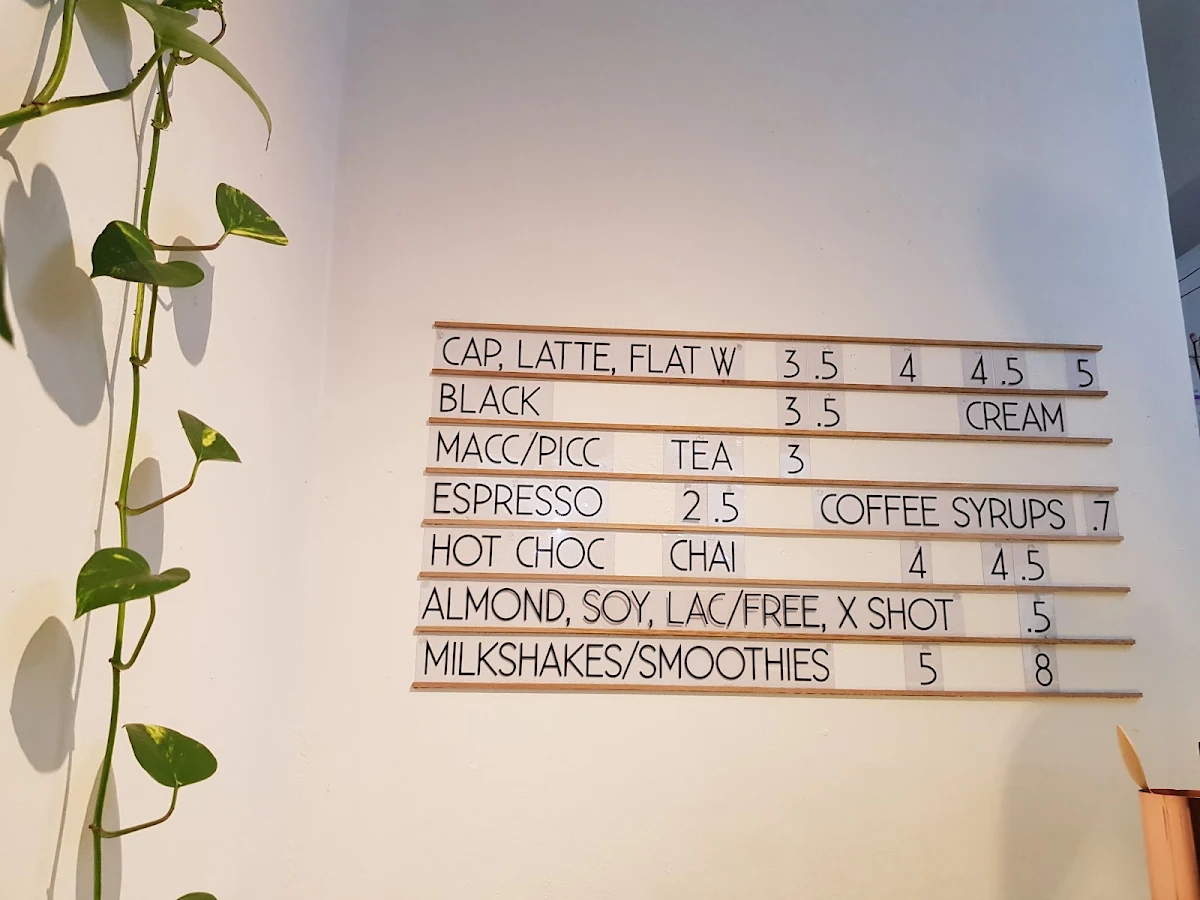 CAP, LATTE, FLAT W 3.5 4 4.5 5
BLACK 3.5 CREAM
MACC/PICC TEA 3
ESPRESSO 2.5 COFFEE SYRUPS .7
HOT CHOC CHAI 4 4.5
ALMOND, SOY, LAC/FREE, X SHOT .5
MILKSHAKES/SMOOTHIES 5 8